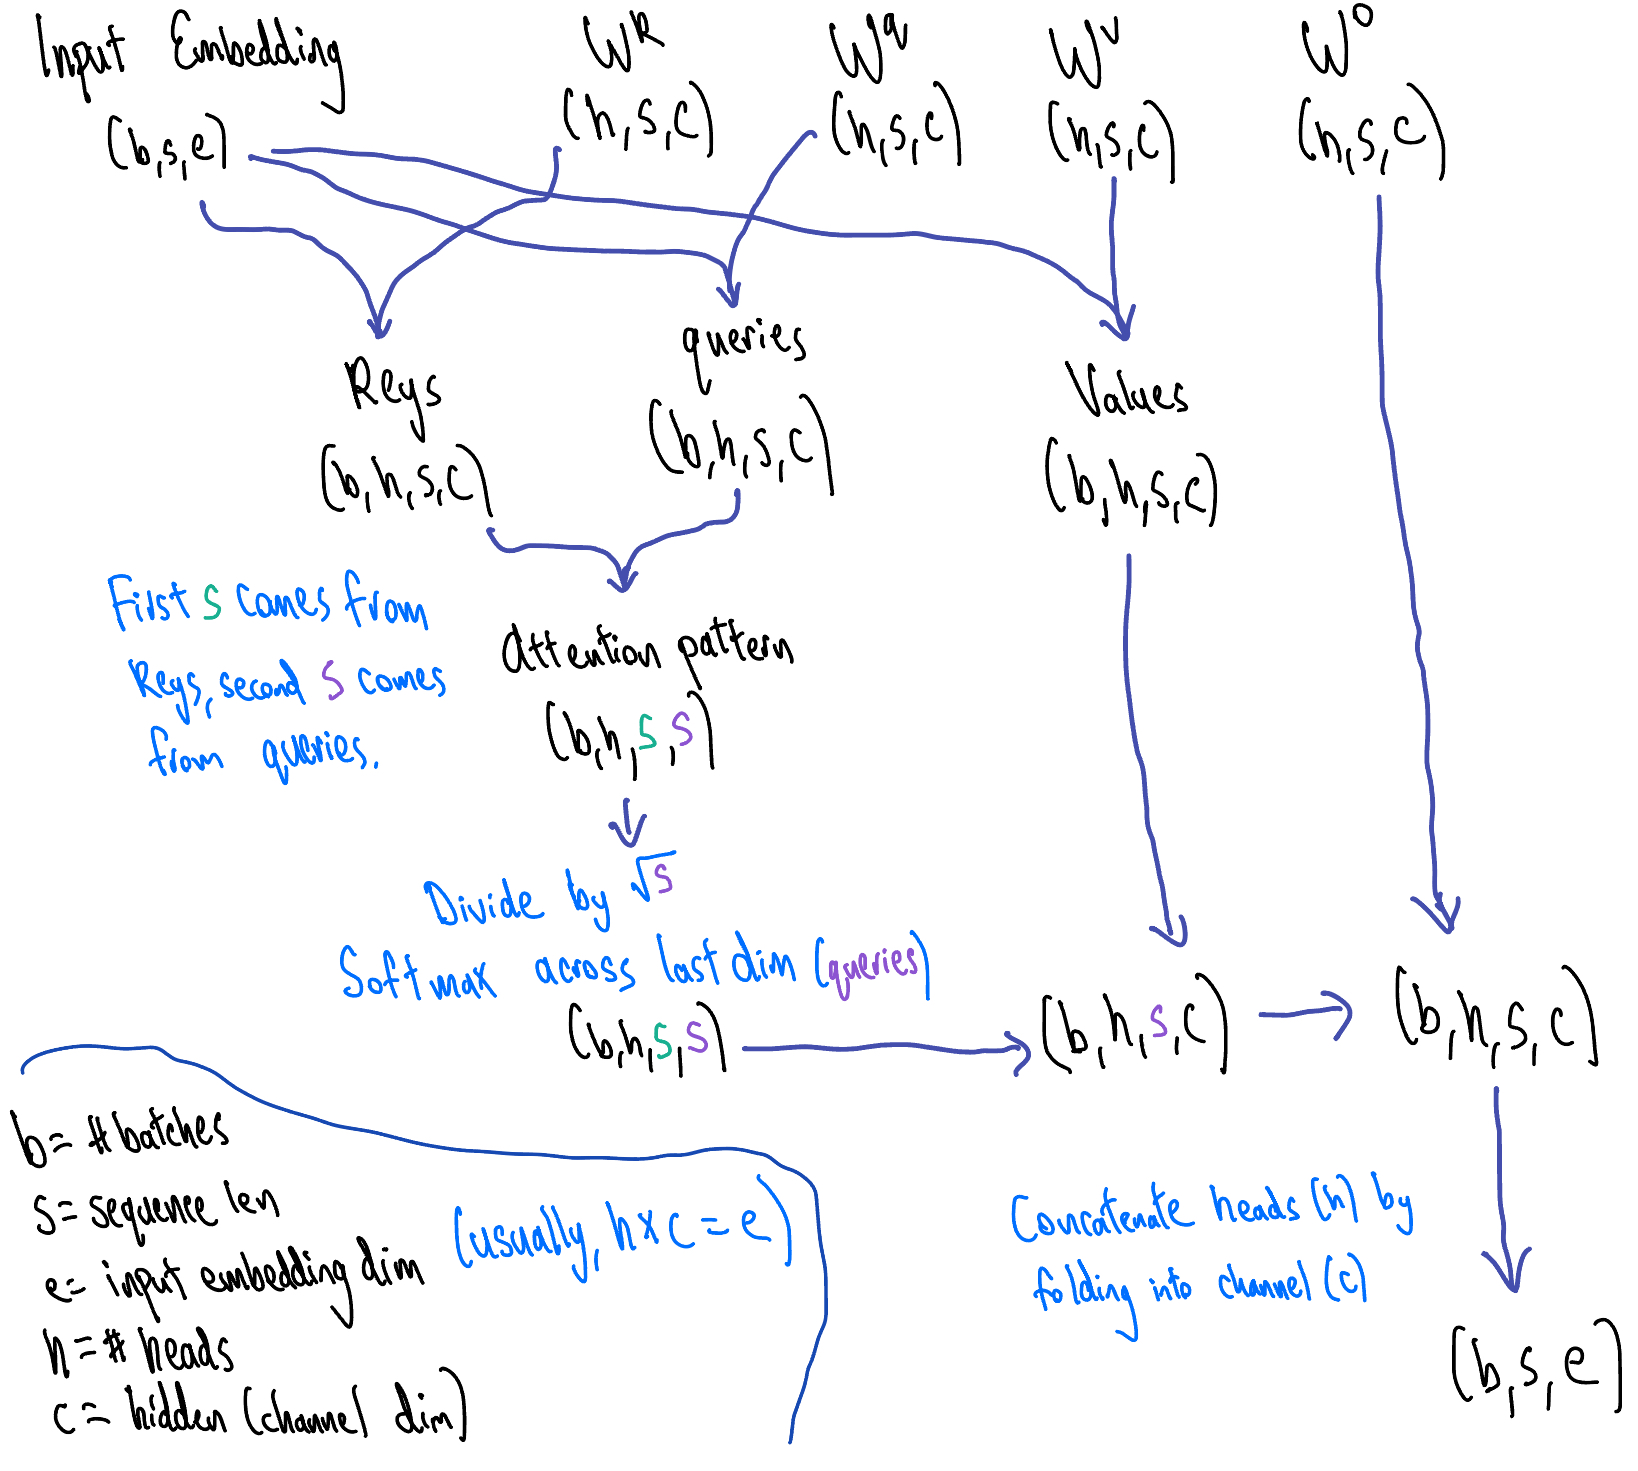 Input Embedding
(b,s,e)
W^k
(h,s,c)
W^q
(h,s,c)
W^v
(h,s,c)
W^o
(h,s,c)
Keys
(b,h,s,c)
queries
(b,h,s,c)
Values
(b,h,s,c)
First s comes from
Keys, second s comes
from queries.
Attention pattern
(b,h,s,s)
Divide by √s
Softmax across last dim (queries)
(b,h,s,s)
(b,h,s,c)
(b,h,s,c)
Concatenate heads (h) by
folding into channel (c)
(b,s,e)
b= # batches
s= sequence len
e= input embedding dim
(usually, h x c = e)
h = # heads
c = hidden (channel dim)